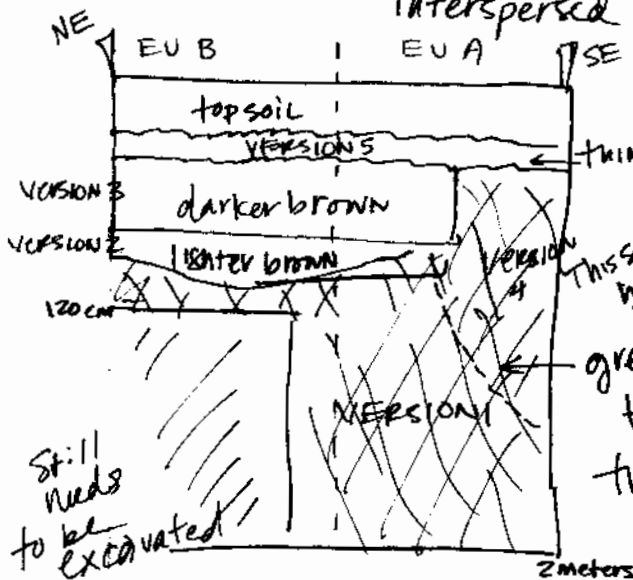 interspersed
NE
EU B
EU A
SE
topsoil
VERSION 5
thin
VERSION 3
darker brown
VERSION 2
lighter brown
VERSION
4
This s
120 cm
gre
VERSION 1
Still
needs
to be
excavated
2 meters